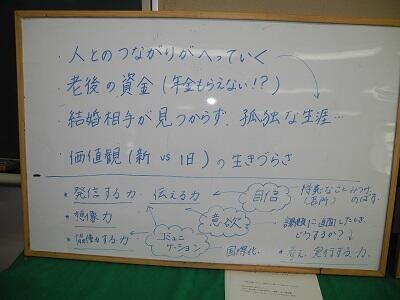 ・人とのつながりがへっていく
・老後の資金(年金もらえない!?)
・結婚相手が見つからず、孤独な生涯…
・価値観(新 vs 旧)の生きづらさ
*発信する力 伝える力 自信 得意なことみつけ(長所) のばす。
*想像力 意欲 課題に直面したとき、どうするか?
*協働する力 コミュニケーション 国際化 *考え、発行する力